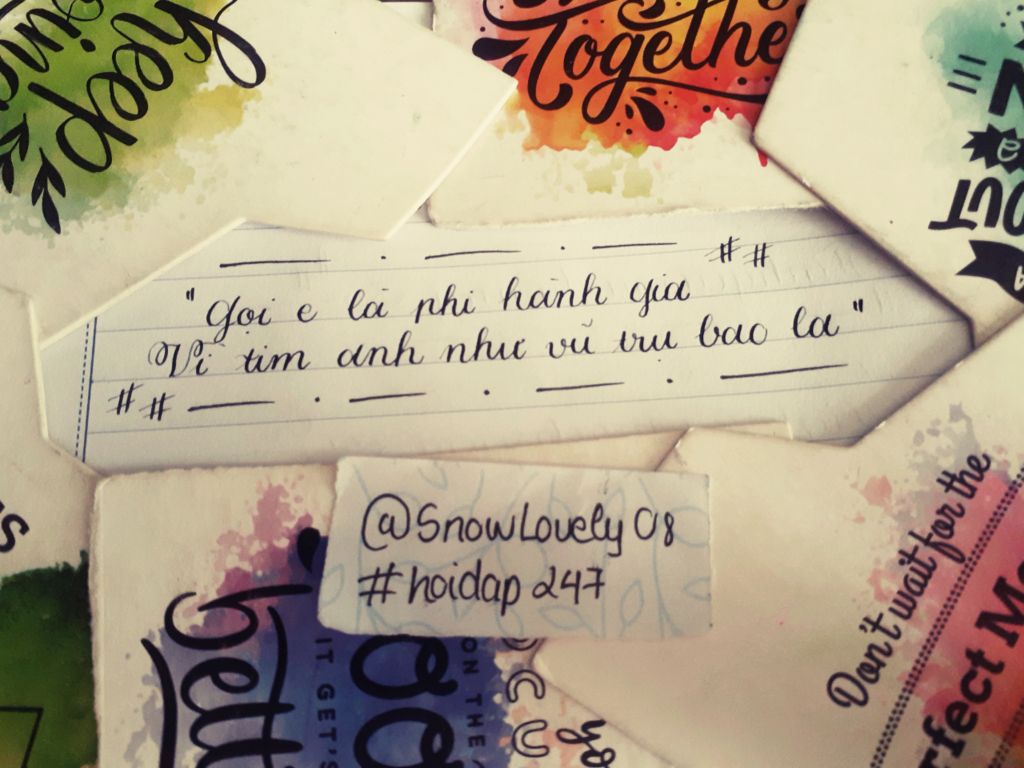 Keep
Together
OUT
— . — . — ##
"Gọi e là phi hành gia
Vì tim anh như vũ trụ bao la"
## — . — . — . —
@SnowLovely08
#hoidap247
Don't wait for the
IT GET'S
ON THE